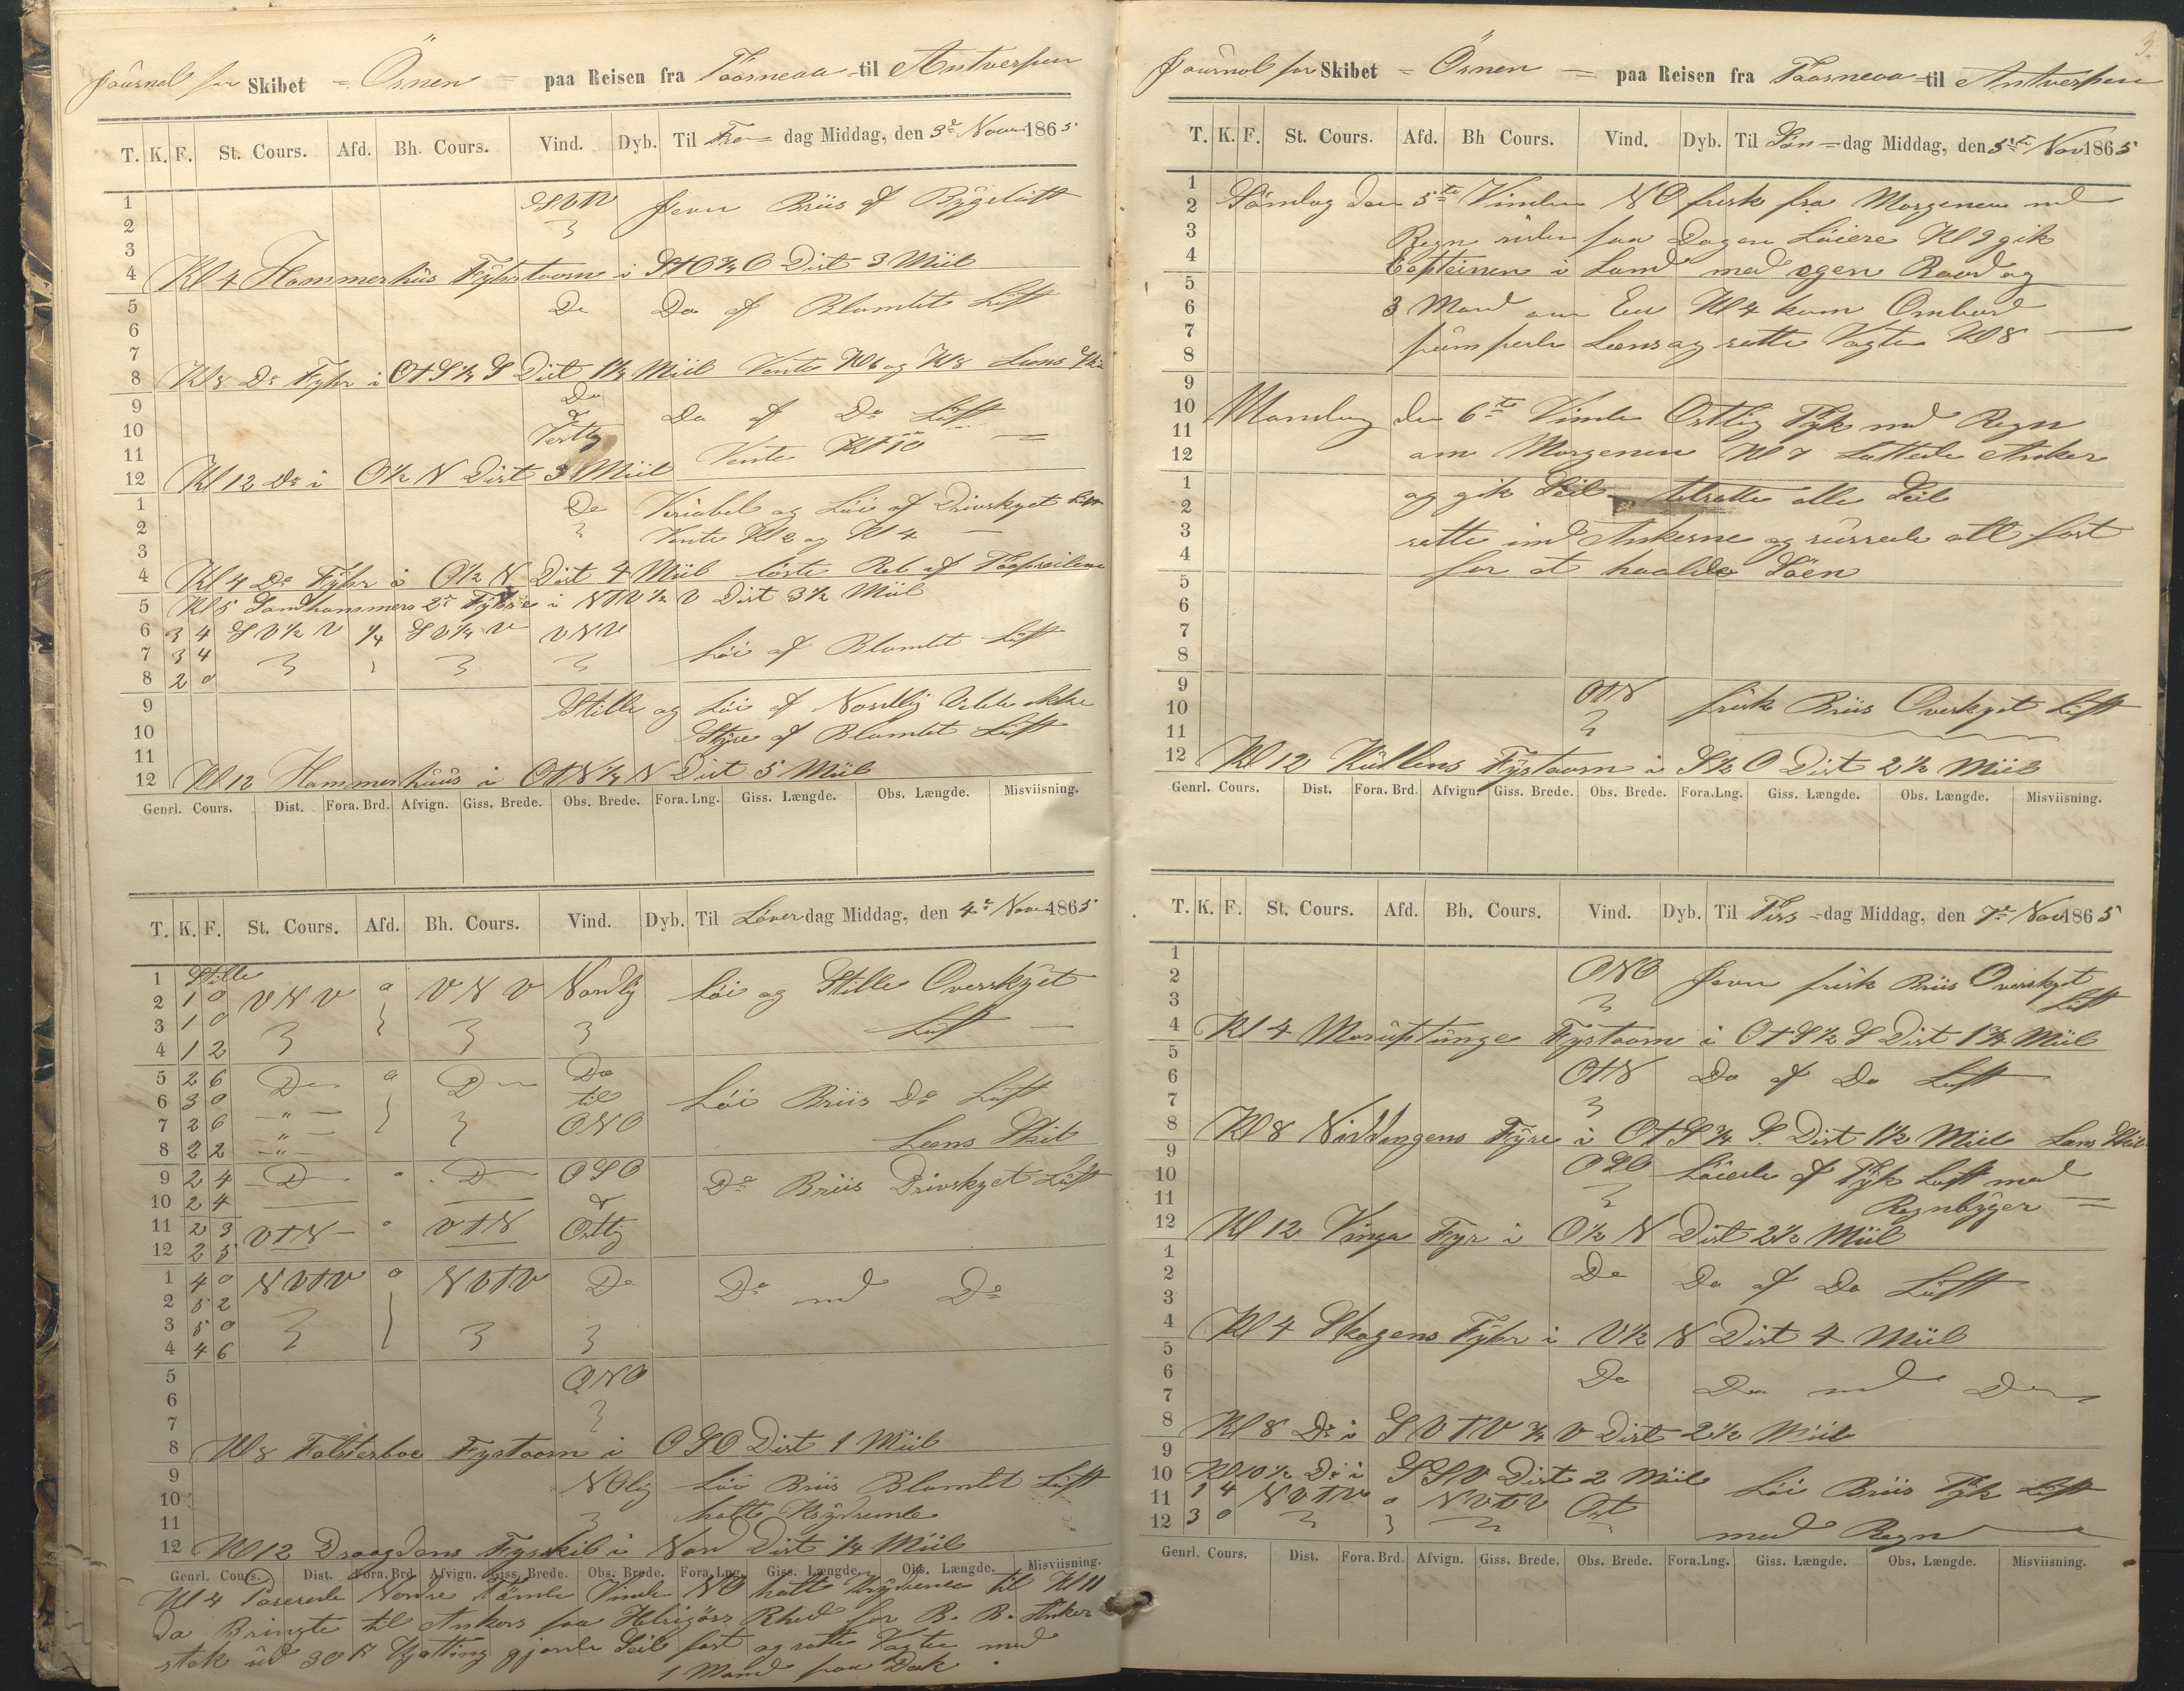 Journal for Skibet = Örnen = paa Reisen fra Taarneaa til Antverpen
T. K. F. St. Cours. Afd. Bh. Cours. Vind. Dyb. Til Fre= dag Middag, den 3e Novr 1865
1 Jevn Briis af Bygeluft
2
3
4 Kl 4 Hammerhuus Fyrtaarn i StO ¾ O Dist 3 Miil
5 Do Do af Blandet Luft
6
7
8 Kl 8 Do Fyhr i OtS ½ S Dist 1½ Miil Vente Kl 6 og Kl 8 Lens Skib
9 Do Do af Do Luft
10 Vestlig Vente Kl 10
11
12 Kl 12 Do i O½ N Dist 3 Miil
1 Do Variabel og Löi af Drivskyet Luft
2 Vente Kl 2 og Kl 4
3
4 Kl 4 Do Fyhr i O½ N Dist 4 Miil löste Reb af Topseilene
5 Kl 5 Sandhammers 2de Fyhre i NTV ½ V Dist 3½ Miil
6 3 4 SV½ V ¼ SV¼ V VNV Löi af Blandet Luft
7 3 4
8 2 0
9 Stille og Löi af Nordlig Vilde ikke
10 Styre af Blandet Luft
11
12 Kl 12 Hammerhuus i OtN ¼ N Dist 5 Miil
Genrl. Cours. Dist. Fora. Brd. Afvign. Giss. Brede. Obs. Brede. Fora. Lng. Giss. Længde. Obs. Længde. Misviisning.
T. K. F. St. Cours. Afd. Bh. Cours. Vind. Dyb. Til Löver dag Middag, den 4e Novr 1865
1 Stille
2 1 0 VNV 0 VNV Nordlig Löi og Stille Overskyet
3 1 0 Luft
4 1 2
5 2 6 Do 0 Do Do
6 3 0 til Löi Briis Do Luft
7 2 6 ONO
8 2 2 Lens Skib
9 2 4 Do Do OSO Do Briis Drivskyet Luft
10 2 4
11 2 3 VTN 0 VTN Östlig
12 2 5
1 4 0 NVTV 0 NVTV Do Do md Do
2 5 2
3 5 0
4 4 6
5 ONO
6
7
8 Kl 8 Falsterboe Fyrtaarn i OSO Dist 1 Miil
9 NOlig Löi Briis Blandet Luft
10 halte Krydsende
11
12 Kl 12 Draagdens Fyrskib i Nord Dist ¼ Miil
Genrl. Cours. Dist. Fora. Brd. Afvign. Giss. Brede. Obs. Brede. Fora. Lng. Giss. Længde. Obs. Længde. Misviisning.
Kl 4 Paserede Nordre Tönde Vinde NO halte Krydsene til Kl 11
da Bringte til Ankers paa Helsigörs Rhed for B. B. Anker
stak ud 30 Kjætting gjorde Seil fast og satte Vagten med
1 Mand paa Dæk.
3.
Journal for Skibet = Örnen = paa Reisen fra Taarneaa til Antverpen
T. K. F. St. Cours. Afd. Bh Cours. Vind. Dyb. Til Sön = dag Middag, den 5te Nov 1865
1
2 Söndag den 5te Vinden NO frisk fra Morgenen md
3 Regn siden paa Dagen Löiere Kl 9 gik
4 Capteinen i Land med egen Baad og
5
6 3 Mand om Em Kl 4 kom Ombord
7 pumpede Lens og satte Vagten Kl 8
8
9
10 Mandag den 6te Vinden Östlig Tyk md Regn
11 om Morgenen Kl 7 Lettede Anker
12
1 og gik Seil tilsatte alle Seil
2
3 satte ind Ankerne og surrede alt fast
4 for at haalde Söen
5
6
7
8
9 OtN frisk Briis Overskyet Luft
10
11
12 Kl 12 Kullens Fyrtaarn i S½ O Dist 2½ Miil
Genrl. Cours. Dist. Fora. Brd. Afvign. Giss. Brede. Obs. Brede. Fora. Lng. Giss. Længde. Obs. Længde. Misviisning.
T. K. F. St. Cours. Afd. Bh. Cours. Vind. Dyb. Til Tirs = dag Middag, den 7e Nov 1865
1
2 ONO Jevn frisk Briis Overskyet
3 Luft
4 Kl 4 Moruptunge Fyrtaarn i OtS½ S Dist 1¾ Miil
5
6 OtN Do af Do Luft
7
8 Kl 8 Niddingens Fyre i OtS¾ S Dist 1½ Miil Lens Skib
9
10 OSO Löiede af Tyk Luft med
11 Regnbyger
12 Kl 12 Vinga Fyr i O½ N Dist 2½ Miil
1
2 Do Do af Do Luft
3
4 Kl 4 Skagens Fyhr i V½ N Dist 4 Miil
5
6 Do Do md Do
7
8 Kl 8 Do i SVTV¾ V Dist 2½ Miil
9
10 Kl 10½ Do i SSV Dist 2 Miil Löi Briis Tyk Luft
11 1 4 NVTV 0 NVTV Ost
12 3 0 med Regn
Genrl. Cours. Dist. Fora. Brd. Afvign. Giss. Brede. Obs. Brede. Fora. Lng. Giss. Længde. Obs. Længde. Misviisning.